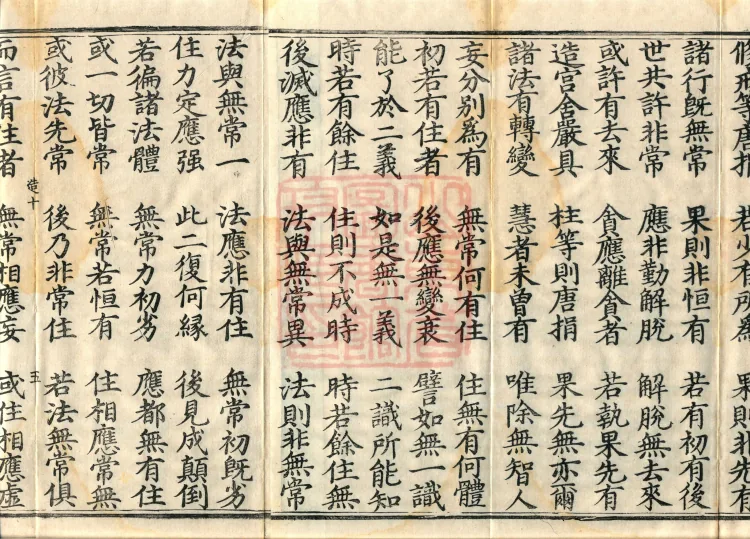 修戒等唐捐　若少有所為　果則非先有
諸行旣無常　果則非恒有　若有初有後
世共許非常　應非勤解脫　解脫無去來
或許有去來　貪應離貪者　若執果先有
造宮舍嚴具　柱等則唐捐　果先無亦爾
諸法有轉變　慧者未曾有　唯除無智人
妄分別爲有　無常何有住　住無有何體
初若有住者　後應無變衰　譬如無一識
能了於二義　如是無一義　二識所能知
時若有餘住　住則不成時　時若餘住無
後滅應非有　法與無常異　法則非無常
法與無常一　法應非有住　無常初旣劣
住力定應强　此二復何縁　後見成顛倒
若徧諸法體　無常力初劣　應都無有住
或一切皆常　無常若恒有　住相應常無
或彼法先常　後乃非常住　若法無常俱
造十　五
而言有住者　無常相應妄　或住相應虛